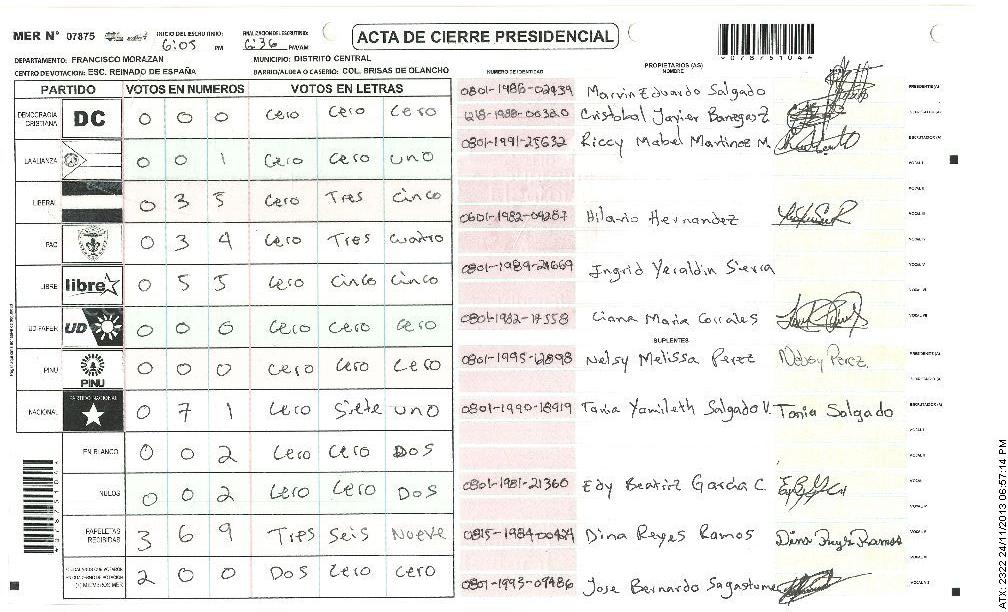 MER Nº 07875 INICIO DEL ESCRUTINIO: 6:05 PM FINALIZACION DEL ESCRUTINIO: 6:36 PM/AM ACTA DE CIERRE PRESIDENCIAL
DEPARTAMENTO: FRANCISCO MORAZAN MUNICIPIO: DISTRITO CENTRAL
CENTRO DE VOTACION: ESC. REINADO DE ESPAÑA BARRIO/ALDEA O CASERIO: COL. BRISAS DE OLANCHO
PARTIDO VOTOS EN NUMEROS VOTOS EN LETRAS
DEMOCRACIA CRISTIANA DC 0 0 0 Cero Cero Cero
LA ALIANZA 0 0 1 Cero Cero uno
LIBERAL 0 3 5 Cero Tres Cinco
PAC 0 3 4 Cero Tres Cuatro
LIBRE libre 0 5 5 Cero Cinco Cinco
UD-FAPER UD 0 0 0 Cero Cero Cero
PINU PINU 0 0 0 Cero Cero Cero
NACIONAL PARTIDO NACIONAL 0 7 1 Cero Siete uno
EN BLANCO 0 0 2 Cero Cero Dos
NULOS 0 0 2 Cero Cero Dos
PAPELETAS RECIBIDAS 3 6 9 Tres Seis Nueve
2 0 0 Dos Cero Cero
NUMERO DE IDENTIDAD PROPIETARIOS (AS) NOMBRE
0801-1986-02939 Marvin Eduardo Salgado PRESIDENTE (A)
Cristobal Javier
0801-1991-25632 Riccy Mabel Martinez M.
0601-1982-04287 Hilario Hernandez
0801-1989-21669 Ingrid Yeraldin Sierra
0801-1982-17558 Maria Corrales
SUPLENTES
0801-1995-12898 Nelsy Melissa Perez Nelsy Perez. PRESIDENTE (A)
0801-1990-18919 Tania Yamileth Salgado V. Tania Salgado
0801-1981-21360 Edy Beatriz Garcia C.
0815-1984-00424 Dina Reyes Ramos
0801-1993-09486 Jose Bernardo Sagastume
ATX-2222 24/11/2013 06:57:14 PM